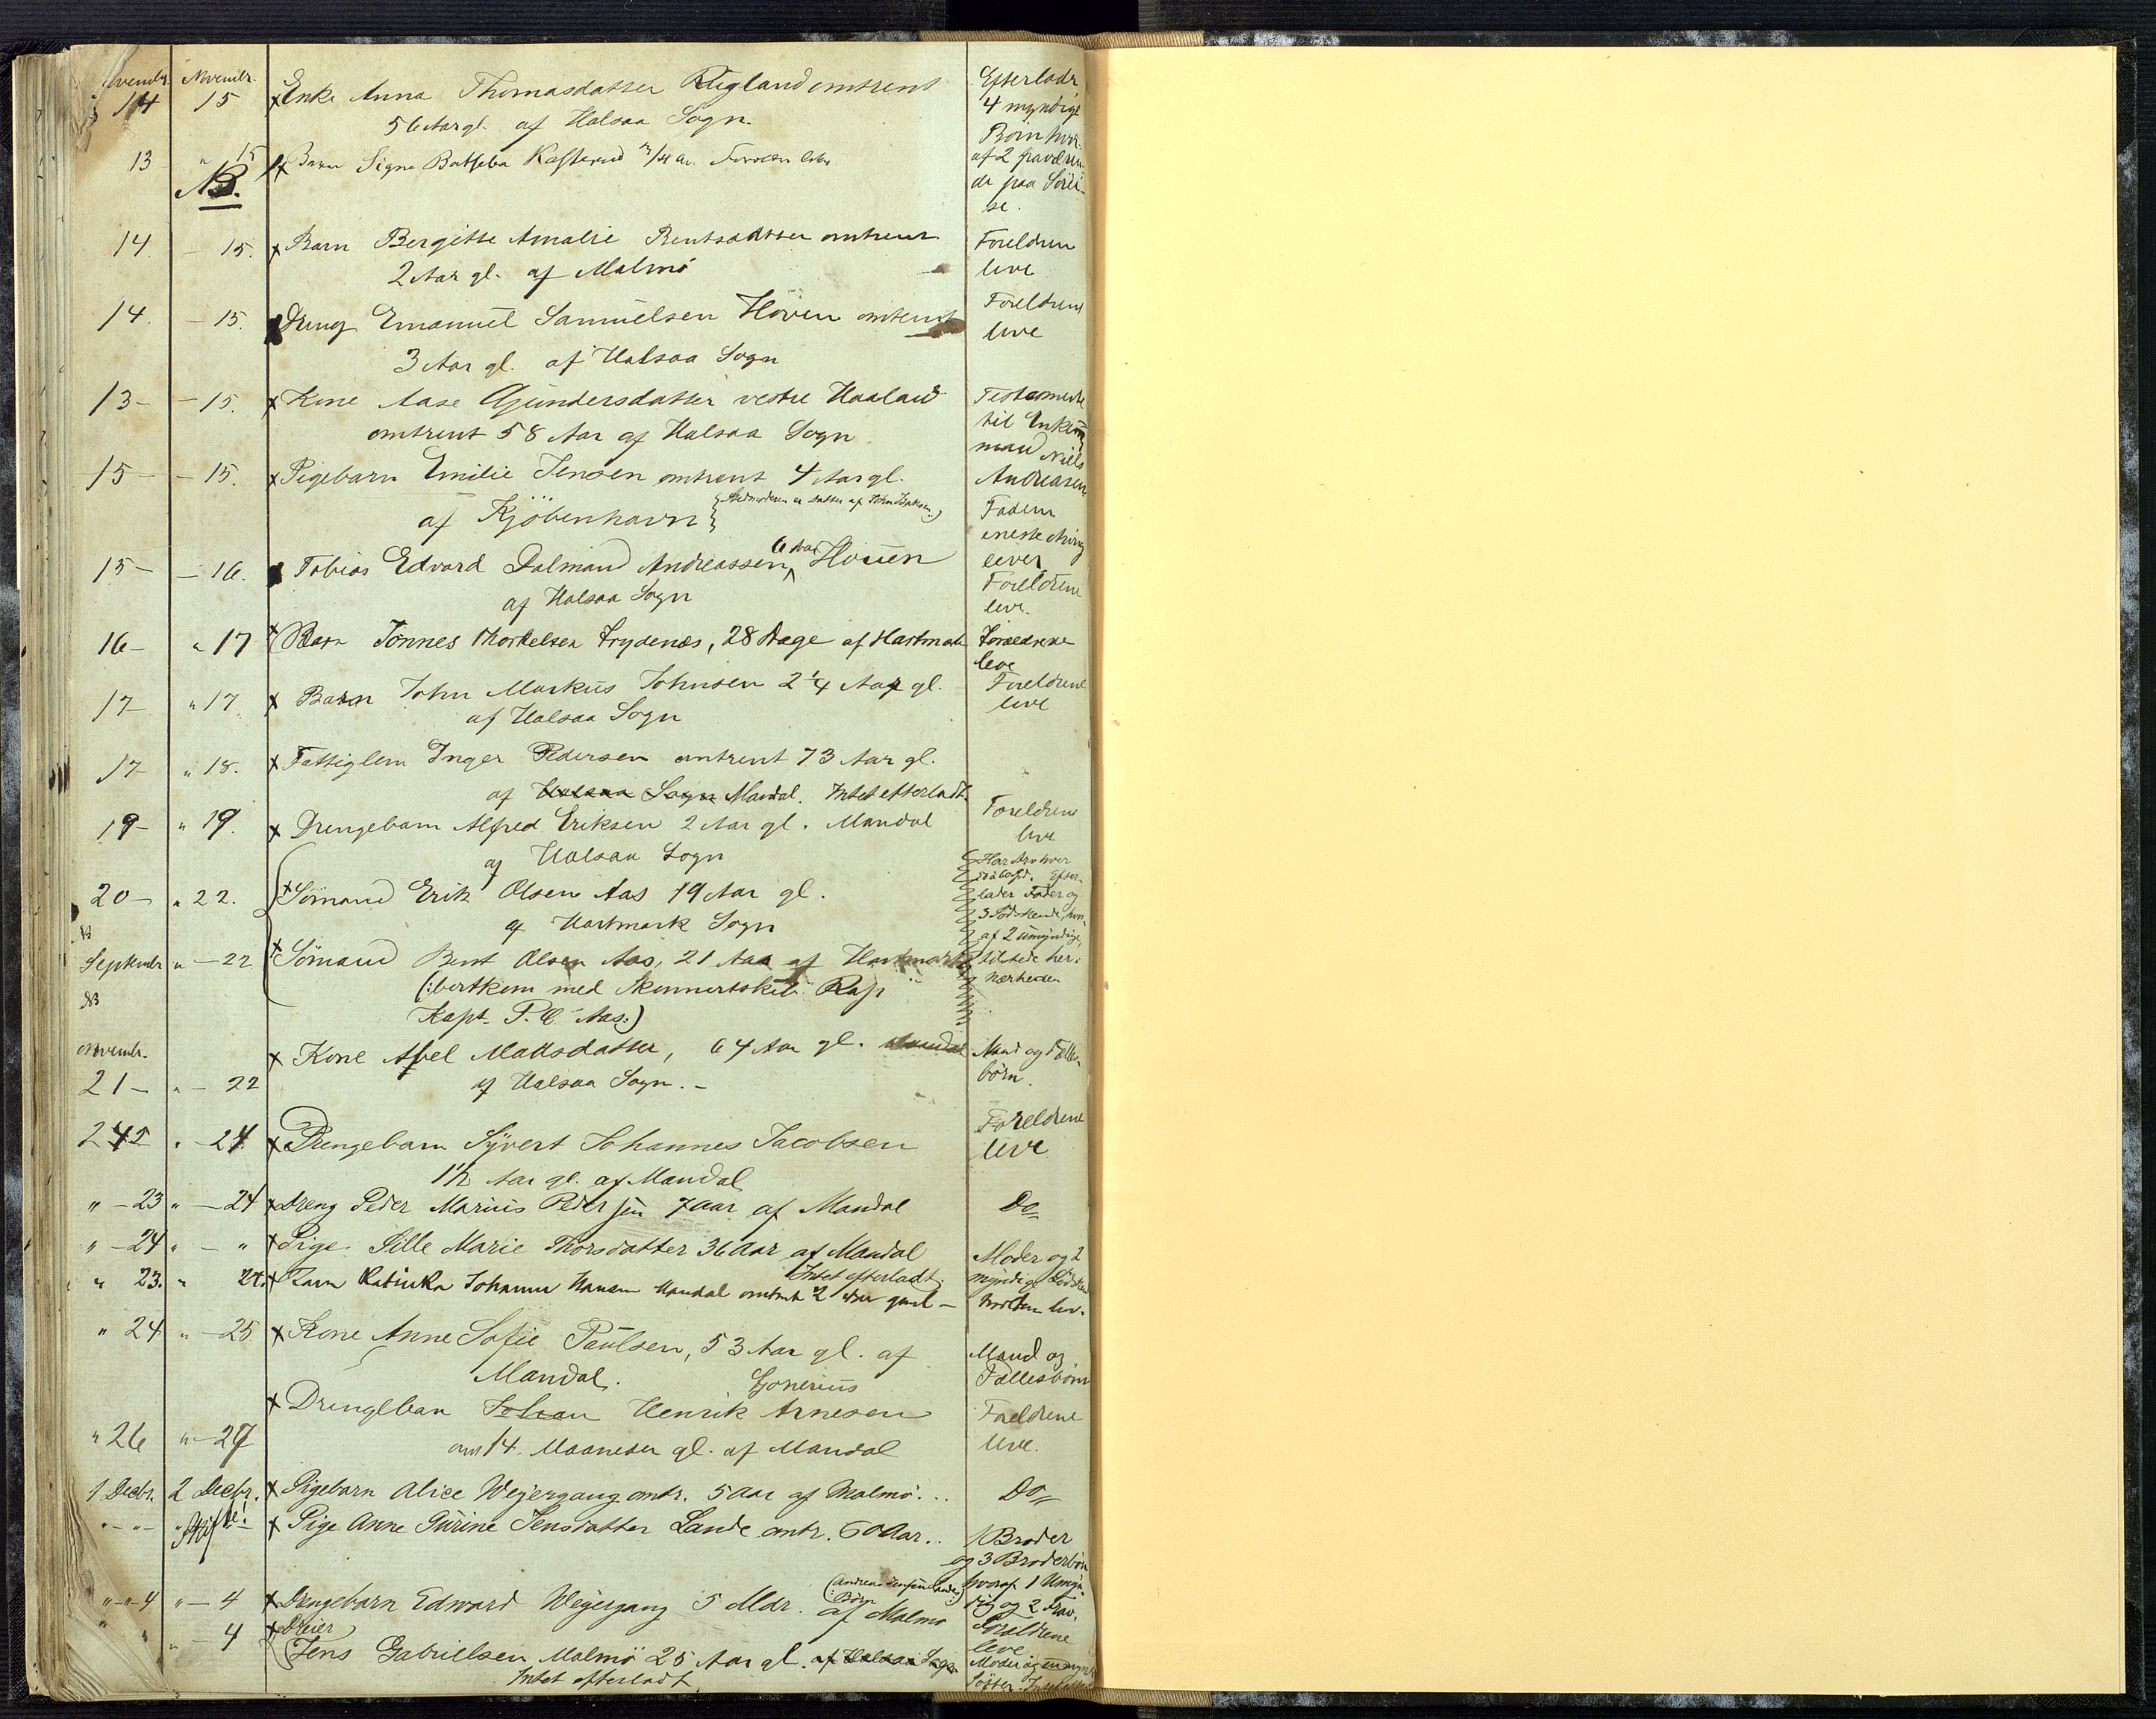 Novembr. Novembr.
14 15 Enke Anna Thomasdatter Rugland omtrent Efterladr
56 Aar gl. af Halsaa Sogn. 4 myndige
Börn hvor-
13 " 15 Barn Signe Batseba 3/4 Aar af 2 fraværen-
NB. de paa Söröi-
se.
14. - 15. Barn Bergitte Amalie Bentsdatter omtrent Foreldren
2 Aar gl. af Malmö leve
14. - 15. Dreng Emanuel Samuelsen Höven omtrent Foreldrene
3 Aar gl. af Halsaa Sogn leve
13 - - 15. Kone Aase Gundersdatter vestre Haaland Testamente
omtrent 58 Aar af Halsaa Sogn til Enkem
mand Niels
15 - - 15. Pigebarn Emilie Jensen omtrent 4 Aar gl. Andreasen
af Kjöbenhavn Fadern
eneste Arving
15 - - 16. Tobias Edvard Dalmand Andreassen, 6 Aar Houen lever
Foreldrene
af Halsaa Sogn leve.
16 - " 17 Barn Tönnes Thorkelsen Frydenæs, 28 Dage af Hartmark Forældrene
leve
17 - " 17 Barn John Markus Johnsen 2 1/4 Aar gl. Foreldrene
af Halsaa Sogn leve
17 - " 18. Fattiglem Inger Pedersen omtrent 73 Aar gl.
af Halsaa Sogn Mandal. Intet efterladt.
19 - " 19. Drengebarn Alfred Eriksen 2 Aar gl. Mandal Foreldrene
leve
af Halsaa Sogn
20 - " 22. Sömand Erik Olsen Aas 19 Aar gl. Efter-
lader Fader og
af Hartmark Sogn 3 Södskende, hvor-
NB af 2 umyndige,
September " - 22 Sömand Bent Olsen Aas, 21 Aar af Hartmark tilstede her i
Nærheden
NB (:bortkom med Skonnertskib "Rap"
Kapt. P. C. Aas:)
Novembr. Kone Abel Madsdatter, 64 Aar gl. Mandal Mand og Fælles-
21 - " - 22 af Halsaa Sogn. - börn.
" - 24. Drengebarn Syvert Johannes Jacobsen Foreldrene
leve
1 1/2 Aar gl. af Mandal
" - 23 " - 24 Dreng Peder Marius Pedersen 7 Aar af Mandal Do
" - 24 " - " Pige Sille Marie Thorsdatter 36 Aar af Mandal Moder og 2
Intet efterladt. myndige Södsk
" 23. " 24. Barn Katinka Johanne Hansen Mandal omtrent 2 Aar gml -
" 24 " - 25. Kone Anne Sofie Paulsen, 53 Aar gl. af Mand og
Mandal. Fællesbörn
Gonerius
Drengebarn Johan Henrik Arnesen Foreldrene
" 26 " - 27 om 14 Maaneder gl. af Mandal leve.
1 Decbr. 2 Decbr. Pigebarn Alice Weyergang omtr. 5 Aar af Malmö... Do
" - " - Skifte! Pige Anne Gurine Jensdatter Lande omtr. 60 Aar.. 1 Broder
og 3 Broderbörn
(Andreas Jensen Landes hvoraf 1 Umyn-
:Börn:) dig og 2 frav.
" - " - 4 " - 4 Drengebarn Edward Weyergang 5 Mdr. af Malmö Forældrene
leve
" " " - 4 Dreier Moder og en mynd
Jens Gabrielsen Malmö 25 Aar gl. af Halsaa Sogn Söster.
Intet efterladt.